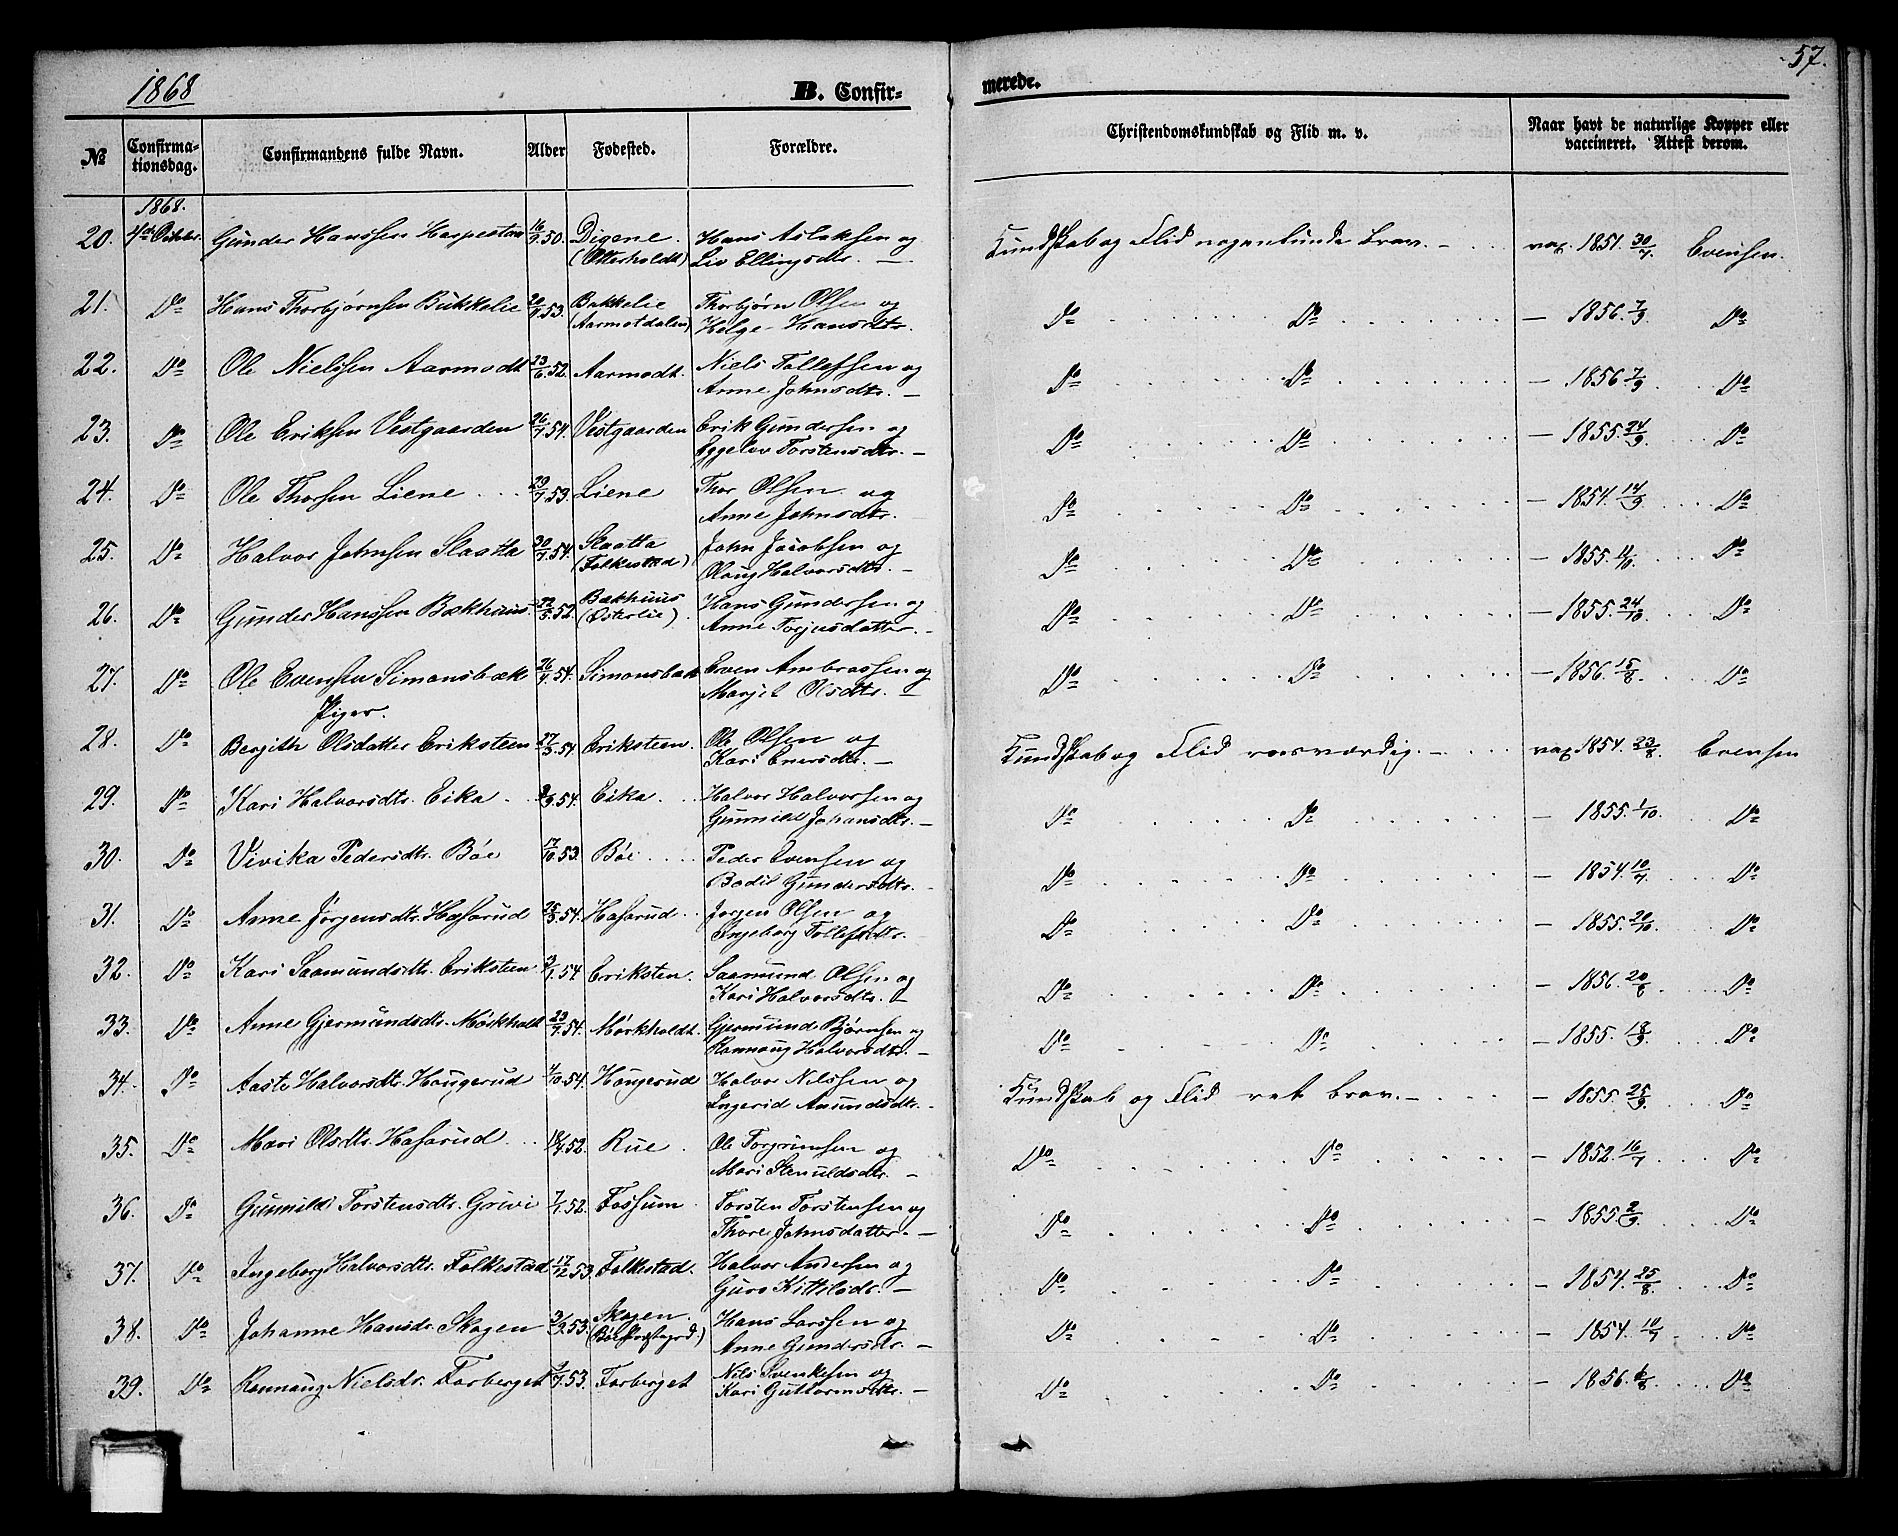 1868 B. Confirmerede. 57.
№ Confirmationsdag. Confirmandens fulde Navn. Alder Fødested. Forældre. Christendomskundskab og Flid m. v. Naar havt de naturlige Kopper eller vaccineret. Attest derom.
1868.
20. 4de October Gunder Hanssen Harpestau 16/7.50. Digene. (Otterholdt) Hans Aslaksen og Liv Ellingsdtr. — Kundskab og Flid nogenlunde brav. — vax. 1851. 30/7. Evensen.
21. Do Hans Thorbjørnsen Bukkelie 20/7.53. Bakkelie (Aarmotdalen) Thorbjørn Olsen og Helge Hansdtr. Do Do — 1856. 7/9. Do
22. Do Ole Nielssen Aarmodt 23/6.52. Aarmodt. Niels Tollefsen og Anne Johnsdtr. — Do Do — 1856. 7/9. Do
23. Do Ole Eriksen Vestgaarden 26/7.54. Vestgaarden Erik Gundersen og Eggelev Torstensdtr. — Do Do — 1855. 24/9. Do
24. Do Ole Thorsen Liene 29/7.53. Liene Thor Olsen og Anne Johnsdtr. Do Do — 1854. 14/9. Do
25. Do Halvor Johnsen Slaatta 30/7.54. Slaatta (Folkestad) John Jacobsen og Olaug Halvorsdtr. — Do Do — 1855. 11/10. Do
26. Do Gunder Hanssen Bækhuus 22/5.52. Bækhuus (Østerlie) Hans Gundersen og Anne Torjusdatter. — Do Do — 1855. 24/10. Do
27. Do Ole Evensen Simonsbæk 26/4.54. Simonsbæk Even Ambrossen og Marjet Olsdtr. — Do Do — 1856. 15/8. Do
Piger.
28. Do Bergith Olsdatter Eriksteen 27/3.54 Eriksteen. Ole Olsen og Kari Enersdtr. — Kundskab og Flid rosværdig. — vax 1854. 23/8. Evensen
29. Do Kari Halvorsdtr. Eika 2/9.54. Eika. Halvor Halvorsen og Gunnild Johansdtr. — Do Do — 1855. 1/10. Do
30. Do Vivika Pedersdtr. Bøe 17/10.53. Bøe Peder Evensen og Bodil Gundersdtr. — Do Do — 1854. 10/7. Do
31. Do Anne Jørgensdtr. Hafarud 25/3.54. Hafarud Jørgen Olsen og Ingeborg Tollefsdtr. — Do Do — 1855. 20/10. Do
32. Do Kari Saamundsdtr. Eriksteen 3/1.54 Eriksten. Saamund Olsen og Kari Halvorsdtr. — Do Do — 1856. 20/8. Do
33. Do Anne Gjermundsdtr. Mørkholt 23/7.54. Mørkholdt. Gjermund Bjørnsen og Rannaug Halvorsdtr. — Do Do — 1855. 18/9. Do
34. Do Aaste Halvorsdtr. Haugerud 7/10.54. Haugerud Halvor Nilssen og Ingerid Amundsdtr. — Kundskab og Flid ret brav. — — 1855. 25/9. Do
35. Do Mari Olsdtr. Hafarud 18/4.52. Rue Ole Torgrimsen og Mari Stenuldsdtr. — Do Do — 1852. 16/7. Do
36. Do Gunnild Torstensdtr. Grivi 7/1.52. Fossum Torsten Torstensen og Thore Johnsdatter. — Do Do — 1855 2/9. Do
37. Do Ingeborg Halvorsdtr. Folkestad 17/12.53. Folkestad. Halvor Andersen og Guro Kittilsdr. — Do Do — 1854. 25/8. Do
38. Do Johanne Hansdr. Skogen 2/9.53. Skogen. (Bøe Præstegrd.) Hans Larssen og Anne Gundersdr. — Do Do — 1854. 10/7 Do
39. Do Rannaug Nielsdr. Forberget 2/7.53. Forberget Nils Svenkesen og Kari Guttormsdtr. — Do Do — 1856. 6/8. Do